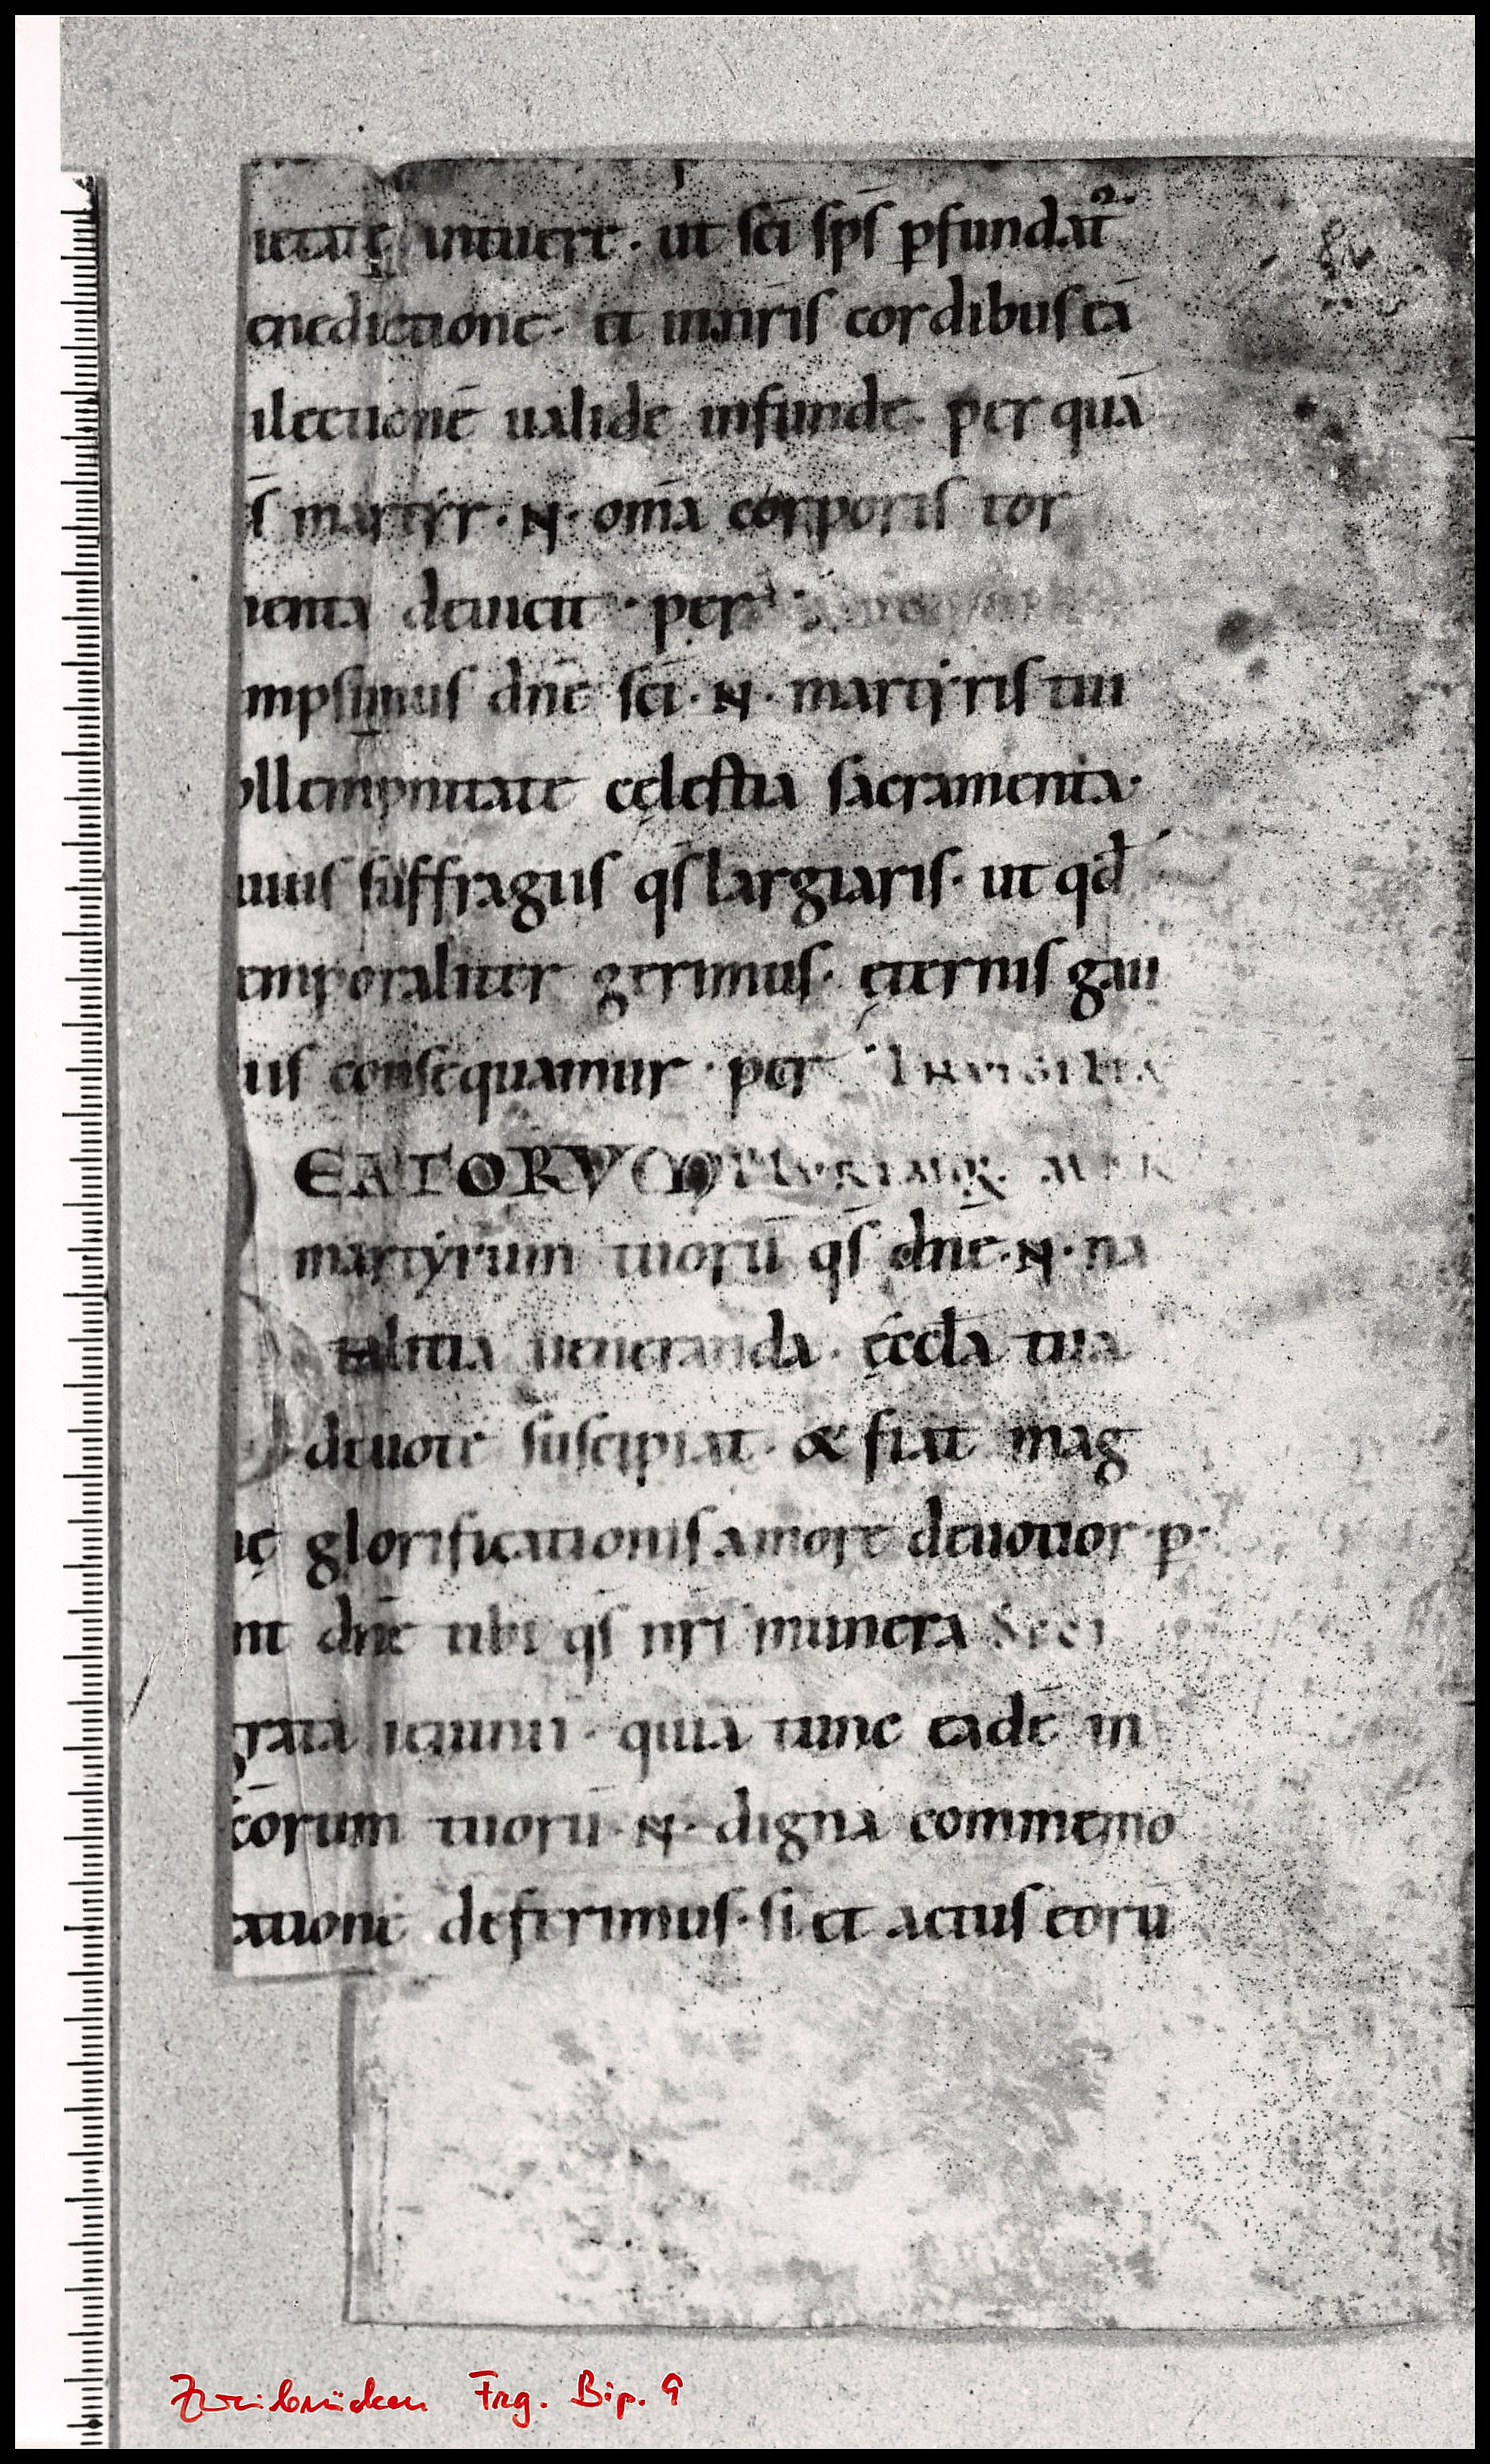 ietatę intuere · ut sc̄i sp̄s ꝑfundat᷑
enedictione · et in nr̄is cordibus eā
ilectionē ualide infunde · per quā
s̄ martyr · N · om̄a corporis tor
menta deuicit · per
mpsimus dn̄e sc̄i · N · martyris tui
ollempnitate cęlestia sacramenta ·
uius suffragiis qs̄ largiaris · ut qd̄
emporaliter gerimus · ęternis gau
iis consequamur · per IN VIGILIA
EATORUM PLURIMOR MAR
martyrum tuorū qs̄ dn̄e · N · na
talitia ueneranda · ęccl̄a tua
deuote suscipiat · & fiat mag
nę glorificationis amore deuotior · p ·
nt dn̄e tibi qs̄ nr̄i munera SECR
grata ieiunii · quia tunc eadē in
c̄orum tuorū · N · digna commemo
atione deferimus · si et actus eorū
Zweibrücken Frg. Bip. 9